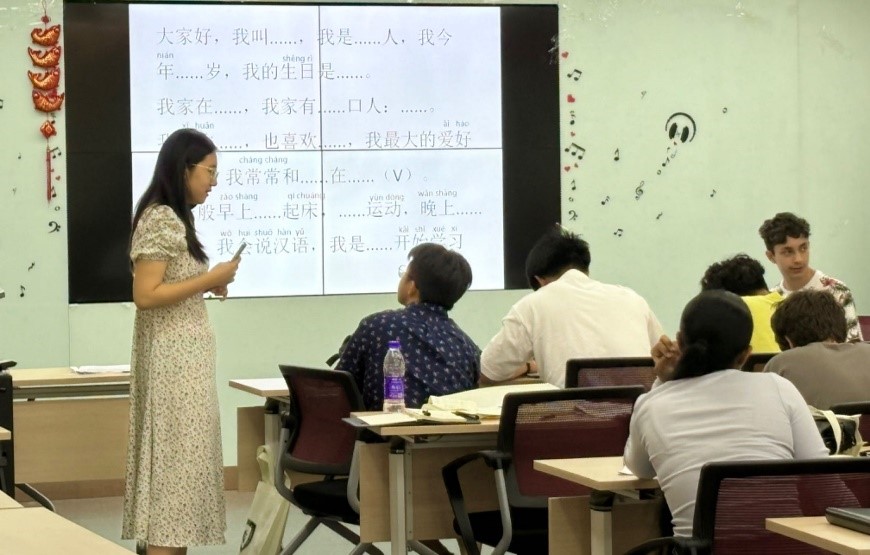 大家好，我叫……，我是……人，我今
nián shēng rì
年……岁，我的生日是……。
我家在……，我家有……口人：……。
xǐ huān ài hào
……，也喜欢……，我最大的爱好
cháng cháng
我常常和……在……（V）。
zǎo shang qǐ chuáng yùn dòng wǎn shàng
般早上……起床，……运动，晚上……
wǒ huì shuō hàn yǔ kāi shǐ xué xí
我会说汉语，我是……开始学习